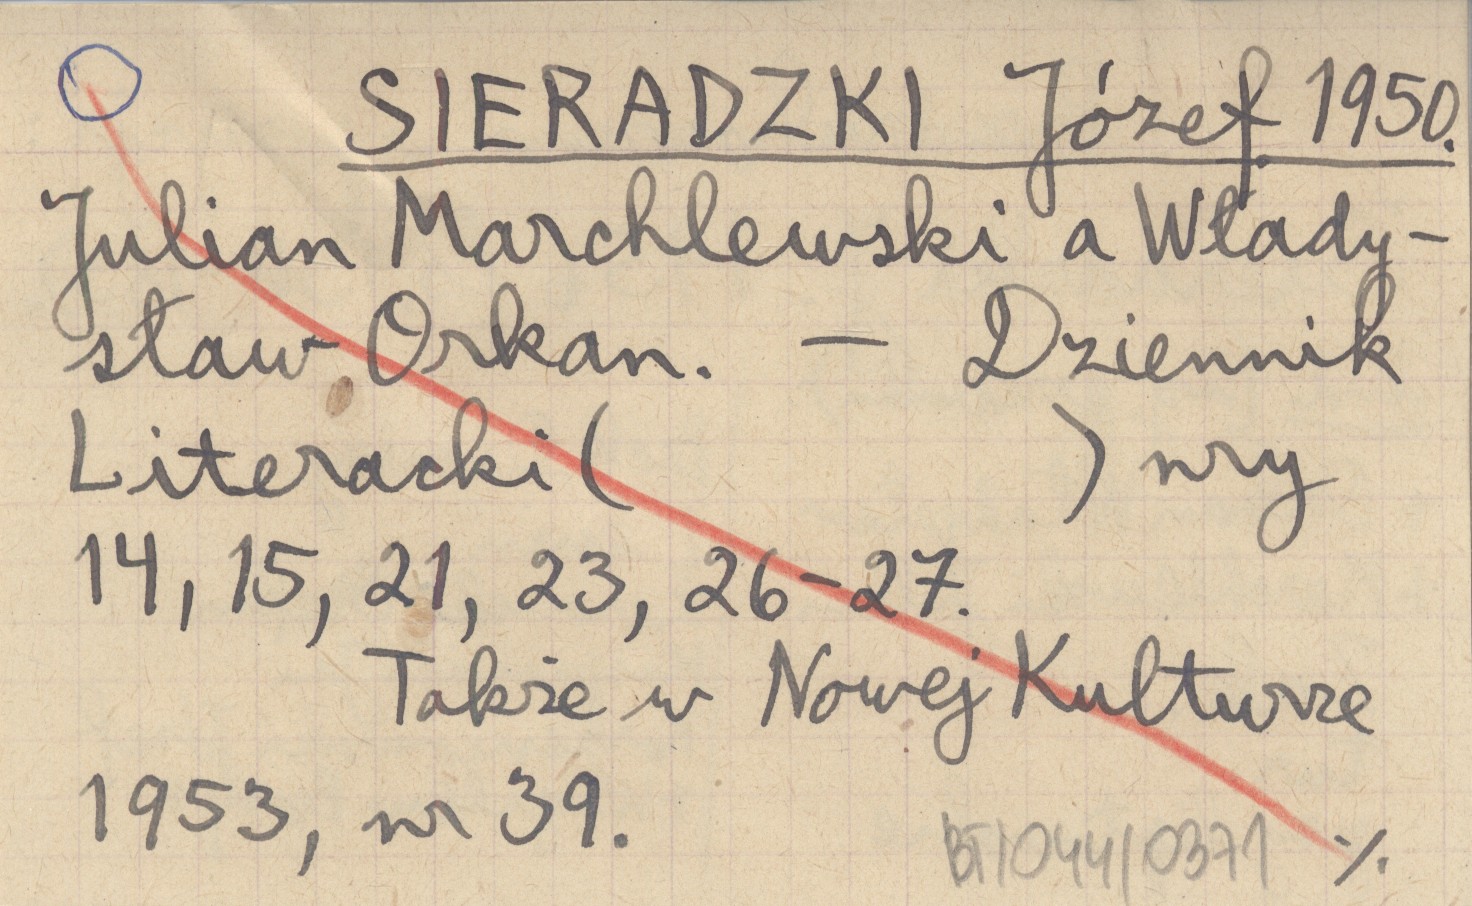 SIERADZKI Józef. 1950.
Julian Marchlewski a Włady-
sław Orkan. — Dziennik
Literacki ( ) nry
14, 15, 21, 23, 26-27.
Także w Nowej Kulturze
1953, nr 39.
BT/044/0371 ·/.